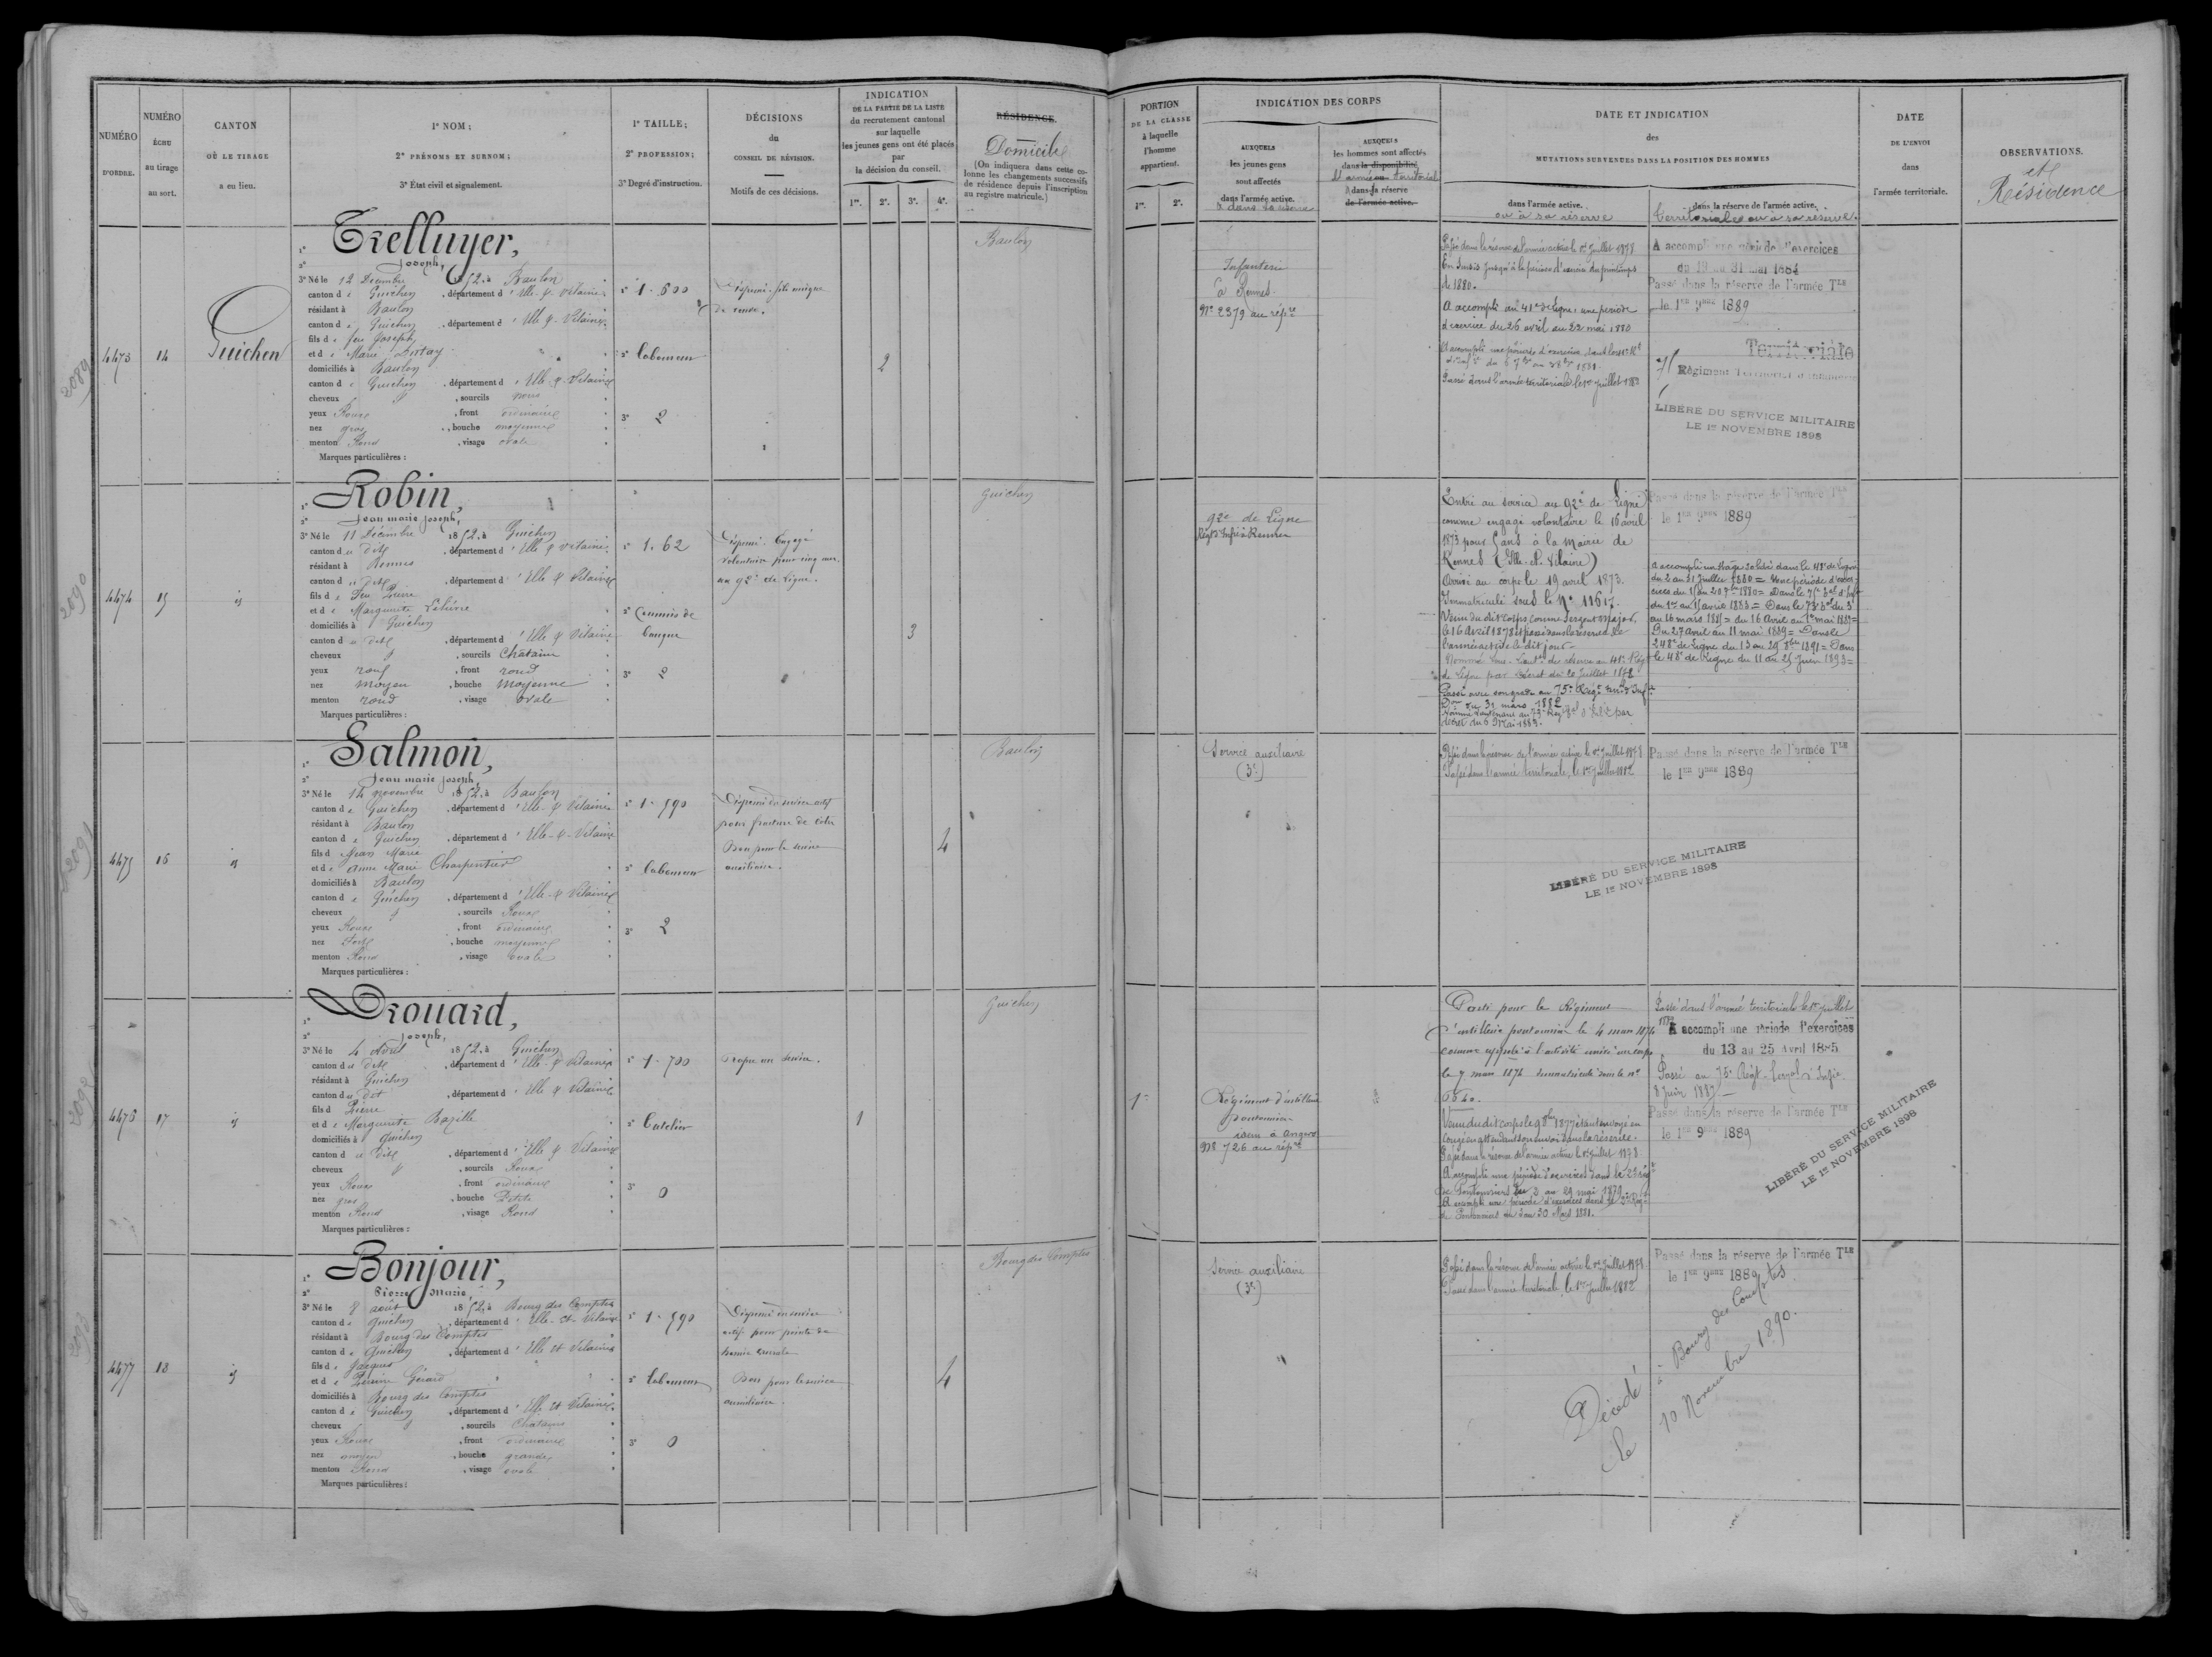 NUMÉRO
D'ORDRE.
NUMÉRO
ÉCHU
au tirage
au sort.
CANTON
OÙ LE TIRAGE
a eu lieu.
1º NOM;
2º PRÉNOMS ET SURNOM;
3º État civil et signalement.
1º TAILLE;
2º PROFESSION;
3º Degré d'instruction.
DÉCISIONS
du
CONSEIL DE RÉVISION.
Motifs de ces décisions.
INDICATION
DE LA PARTIE DE LA LISTE
du recrutement cantonal
sur laquelle
les jeunes gens ont été placés
par
la décision du conseil.
1re. 2e. 3e. 4e.
RÉSIDENCE
Domicile
(On indiquera dans cette co-
lonne les changements successifs
de résidence depuis l'inscription
au registre matricule.)
PORTION
DE LA CLASSE
à laquelle
l'homme
appartient.
1re. 2e.
INDICATION DES CORPS
AUXQUELS
les jeunes gens
sont affectés
dans l'armée active.
& dans sa réserve
AUXQUELS
les hommes sont affectés
dans la disponibilité
l'armée territoriale
& dans sa réserve
de l'armée active.
DATE ET INDICATION
des
MUTATIONS SURVENUES DANS LA POSITION DES HOMMES
dans l'armée active.
ou à sa réserve
dans la réserve de l'armée active.
territoriale ou à sa réserve.
DATE
DE L'ENVOI
dans
l'armée territoriale.
OBSERVATIONS.
et
Résidence
2089
4473
14
Guichen
1º Trelluyer,
2º Joseph,
3º Né le 12 Décembre 1852, à Baulon
canton de Guichen, département d'Ille-&-Vilaine
résidant à Baulon
canton de Guichen, département d'Ille-&-Vilaine
fils de feu Joseph
et de Marie
domiciliés à Baulon
canton de Guichen, département d'Ille-&-Vilaine
cheveux &, sourcils roux
yeux Roux, front ordinaire
nez gros, bouche moyenne
menton Rond, visage ovale
Marques particulières :
1º 1.600
2º laboureur
3º 2
Dispensé. fils unique
de veuve.
2
Baulon
Infanterie
à Rennes
Nº 2379 au répre
Passé dans la réserve de l'armée active le 1er Juillet 1878
En sursis jusqu'à la période d'exercice du printemps
de 1880.
A accompli au 41e de Ligne, une période
d'exercice du 26 avril au 22 mai 1880
Passé dans l'armée territoriale le 1er Juillet 1882
A accompli une période d'exercices
du 19 au 31 mai 1884
Passé dans la réserve de l'armée Tle
le 1er 9bre 1889
Territoriale
Régiment Territorial d'Infanterie
LIBÉRÉ DU SERVICE MILITAIRE
LE 1er NOVEMBRE 1898
2090
4474
15
id
1º Robin,
2º Jean marie Joseph,
3º Né le 11 Décembre 1852, à Guichen
canton du dit, département d'Ille & Vilaine
résidant à Rennes
canton du dit, département d'Ille & Vilaine
fils de Feu Pierre
et de Marguerite Lelièvre
domiciliés à Guichen
canton du dit, département d'Ille & Vilaine
cheveux &, sourcils Châtains
yeux roux, front rond
nez moyen, bouche moyenne
menton rond, visage ovale
Marques particulières :
1º 1.62
2º Commis de
banque
3º 2
Dispensé. Engagé
volontaire pour cinq ans
au 92e de ligne.
3
Guichen
92e de Ligne
Régt d'Infie à Rennes
Entré au service au 92e de Ligne
comme engagé volontaire le 16 avril
1873 pour 5 ans à la Mairie de
Rennes (Ille-et-Vilaine)
Arrivé au corps le 19 avril 1873.
Immatriculé sous le Nº 11617.
Venu du dit Corps comme Sergent Major
le 16 Avril 1878 et passé dans la réserve de
l'armée active le dit jour.
Nommé Sous-Lieutt de réserve au 41e Régt
de Ligne par décret du 20 Juillet 1878
Passé avec son grade au 75e Régt terral d'Inf.
Don du 31 mars 1882
Nommé Lieutenant au 75e Régt terral d'Infie par
décret du 6 Mai 1883.
Passé dans la réserve de l'armée Tle
le 1er 9bre 1889
A accompli un stage soldé dans le 41e de Ligne
du 2 au 31 Juillet 1880 = Une période d'exer-
cices du 15 au 20 7bre 1880 = Dans le 75e Bal d'Inf
du 1er au 15 avril 1883 = Dans le 75e Bal du 3
au 16 mars 1885 = du 16 Avril au 1er mai 1887 =
Du 27 avril au 11 mai 1889 = Dans le
248e de Ligne du 13 au 29 8bre 1891 = Dans
le 48e de Ligne du 11 au 25 Juin 1893 =
2091
4475
16
id
1º Salmon,
2º Jean marie Joseph,
3º Né le 14 novembre 1852, à Baulon
canton de Guichen, département d'Ille-&-Vilaine
résidant à Baulon
canton de Guichen, département d'Ille-&-Vilaine
fils de Jean Marie
et de Anne Marie Charpentier
domiciliés à Baulon
canton de Guichen, département d'Ille-&-Vilaine
cheveux &, sourcils Roux
yeux Roux, front ordinaire
nez fort, bouche moyenne
menton Rond, visage ovale
Marques particulières :
1º 1.590
2º laboureur
3º 2
Dispensé du service actif
pour fracture de côtes
Bon pour le service
auxiliaire.
4
Baulon
Service auxiliaire
(3e)
Passé dans la réserve de l'armée active le 1er Juillet 1878
Passé dans l'armée territoriale, le 1er Juillet 1882
Passé dans la réserve de l'armée Tle
le 1er 9bre 1889
LIBÉRÉ DU SERVICE MILITAIRE
LE 1er NOVEMBRE 1898
2092
4476
17
id
1º Drouard,
2º Joseph,
3º Né le 4 Avril 1852, à Guichen
canton du dit, département d'Ille-&-Vilaine
résidant à Guichen
canton du dit, département d'Ille & Vilaine
fils de Pierre
et de Marguerite Bazille
domiciliés à Guichen
canton du dit, département d'Ille & Vilaine
cheveux &, sourcils Roux
yeux Roux, front ordinaire
nez gros, bouche Petite
menton Rond, visage Rond
Marques particulières :
1º 1.700
2º Batelier
3º 0
Propre au service.
1
Guichen
1re
Régiment d'artillerie
pontonnier
à Angers
Nº 726 au répre
Parti pour le Régiment
d'artillerie pontonnier le 4 mars 1874
comme appelé à l'activité arrivé au corps
le 7 mars 1874 immatriculé sous le nº
6540.
Venu du dit corps le 9 8bre 1877 étant envoyé en
congé en attendant son envoi dans la réserve.
Passé dans la réserve de l'armée active le 1er Juillet 1878
A accompli une période d'exercices dans le 2e régt
de Pontonniers du 2 au 29 mai 1879
A accompli une période d'exercices dans le 2e Régt
de Pontonniers du 3 au 30 Mars 1881.
Passé dans l'armée territoriale le 1er juillet
1882 A accompli une période d'exercices
du 13 au 25 Avril 1885
Passé au 75e Régt terral d'Infie
8 Juin 1887.
Passé dans la réserve de l'armée Tle
le 1er 9bre 1889
LIBÉRÉ DU SERVICE MILITAIRE
LE 1er NOVEMBRE 1898
2093
4477
18
id
1º Bonjour,
2º Pierre Marie,
3º Né le 8 août 1852, à Bourg des Comptes
canton de Guichen, département d'Ille-et-Vilaine
résidant à Bourg des Comptes
canton de Guichen, département d'Ille et Vilaine
fils de Jacques
et de Perrine Gérard
domiciliés à Bourg des Comptes
canton de Guichen, département d'Ille et Vilaine
cheveux &, sourcils Châtains
yeux Roux, front ordinaire
nez moyen, bouche grande
menton Rond, visage ovale
Marques particulières :
1º 1.590
2º laboureur
3º 0
Dispensé du service
actif pour pointe de
hernie crurale
Bon pour le service
auxiliaire.
4
Bourg des Comptes
Service auxiliaire
(3e)
Passé dans la réserve de l'armée active le 1er Juillet 1878
Passé dans l'armée territoriale le 1er Juillet 1882
Passé dans la réserve de l'armée Tle
le 1er 9bre 1889
Décédé à Bourg des Comptes
le 10 Novembre 1890.